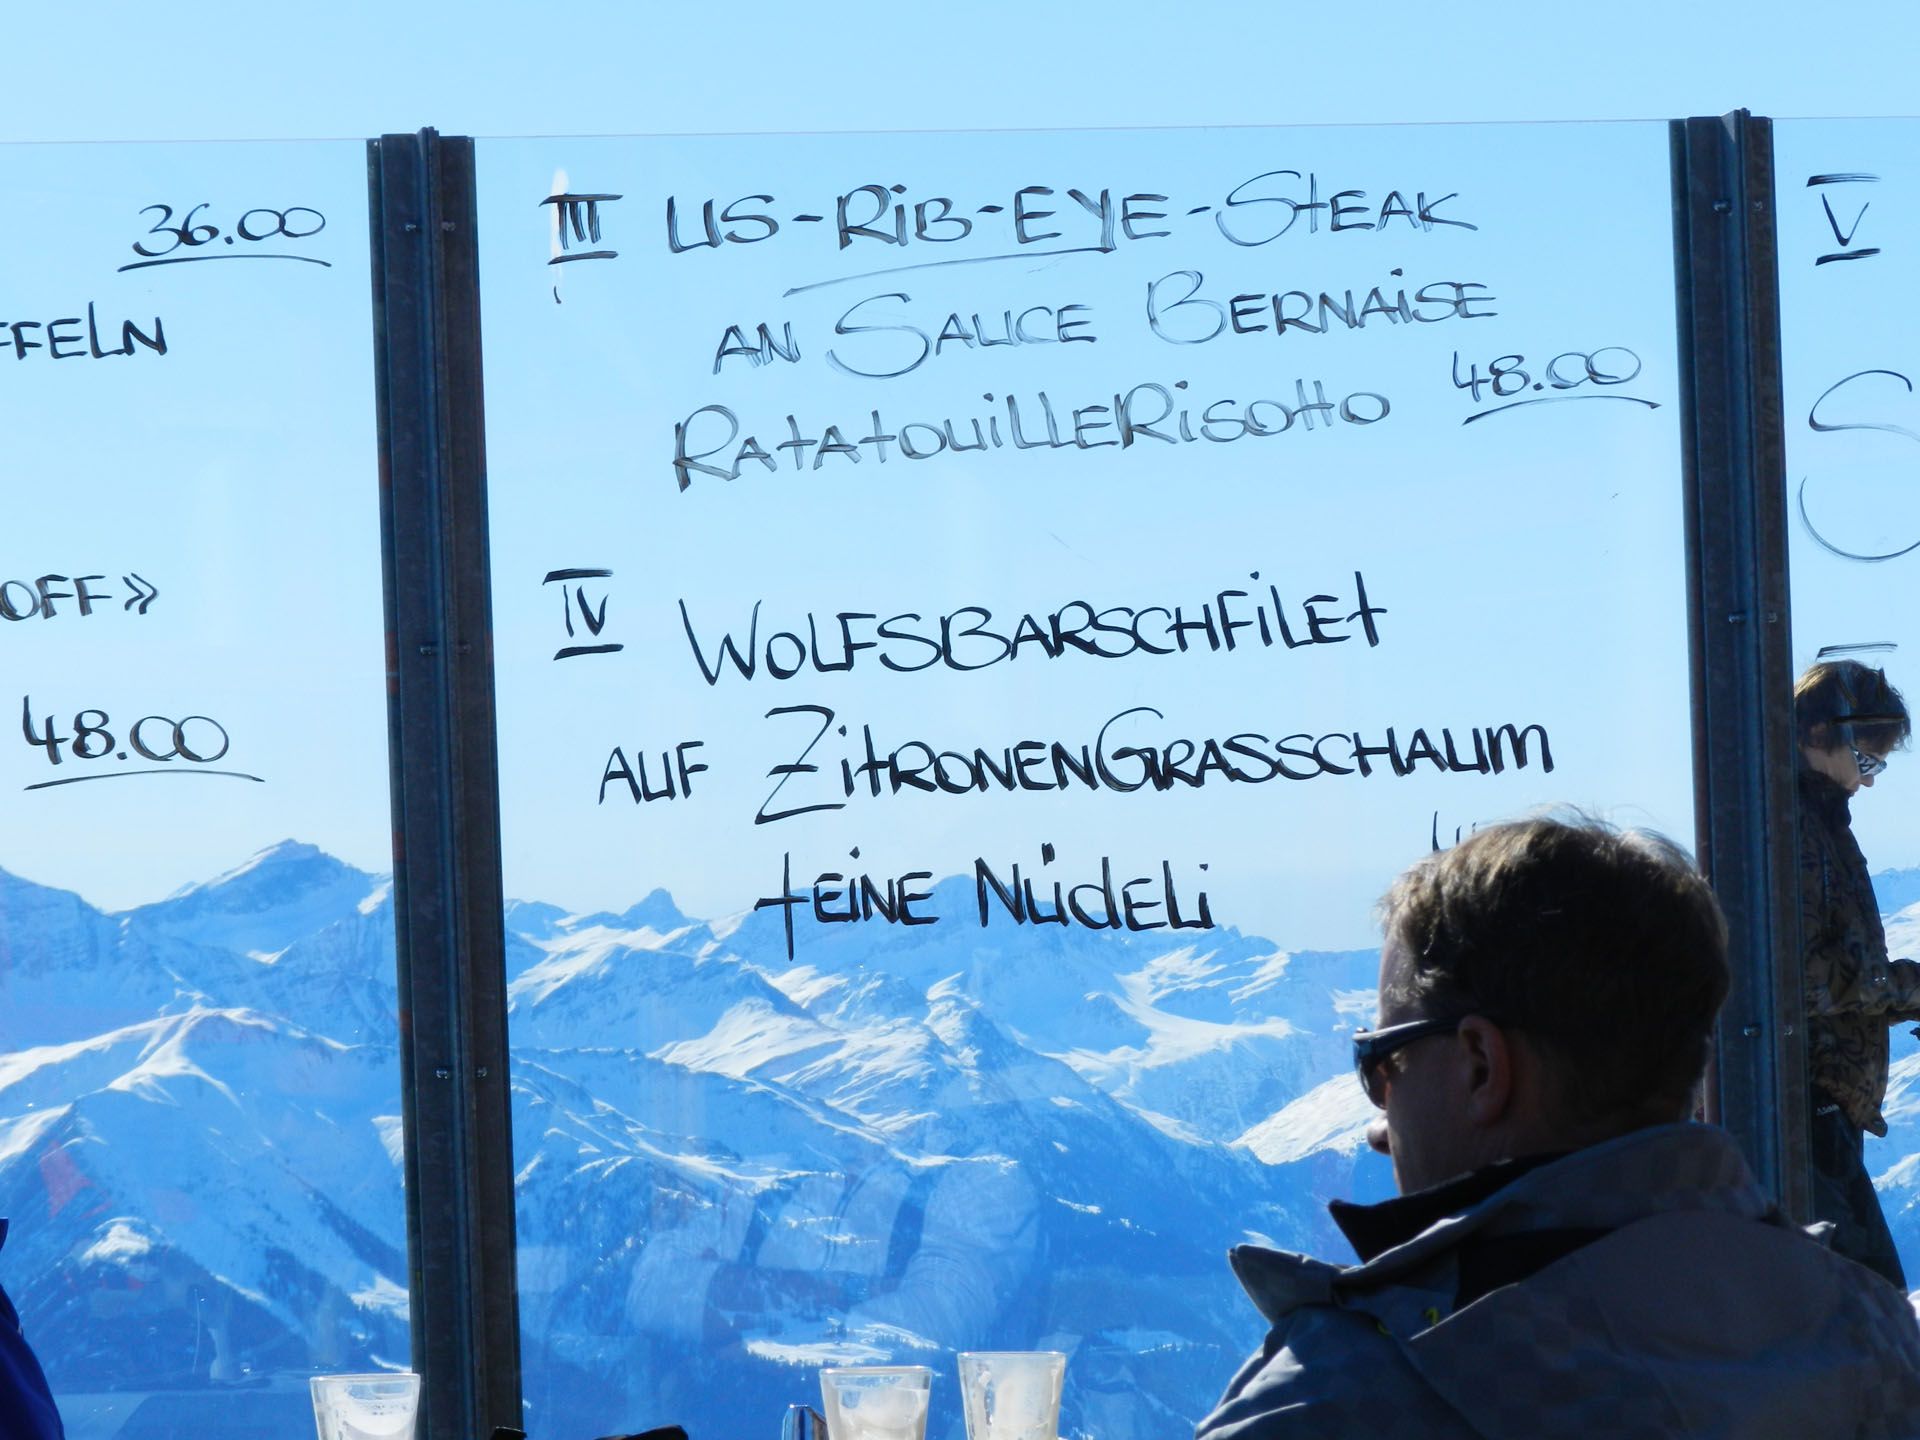 36.00
OFF»
48.00
III US-RiB-EYE-StEAK
AN SAUCE BERNAISE
RATATOUILLERISOTTO 48.00
IV WOLFSBARSCHFILET
AUF ZITRONENGRASSCHAUM
FEINE NÜDELI
V
S